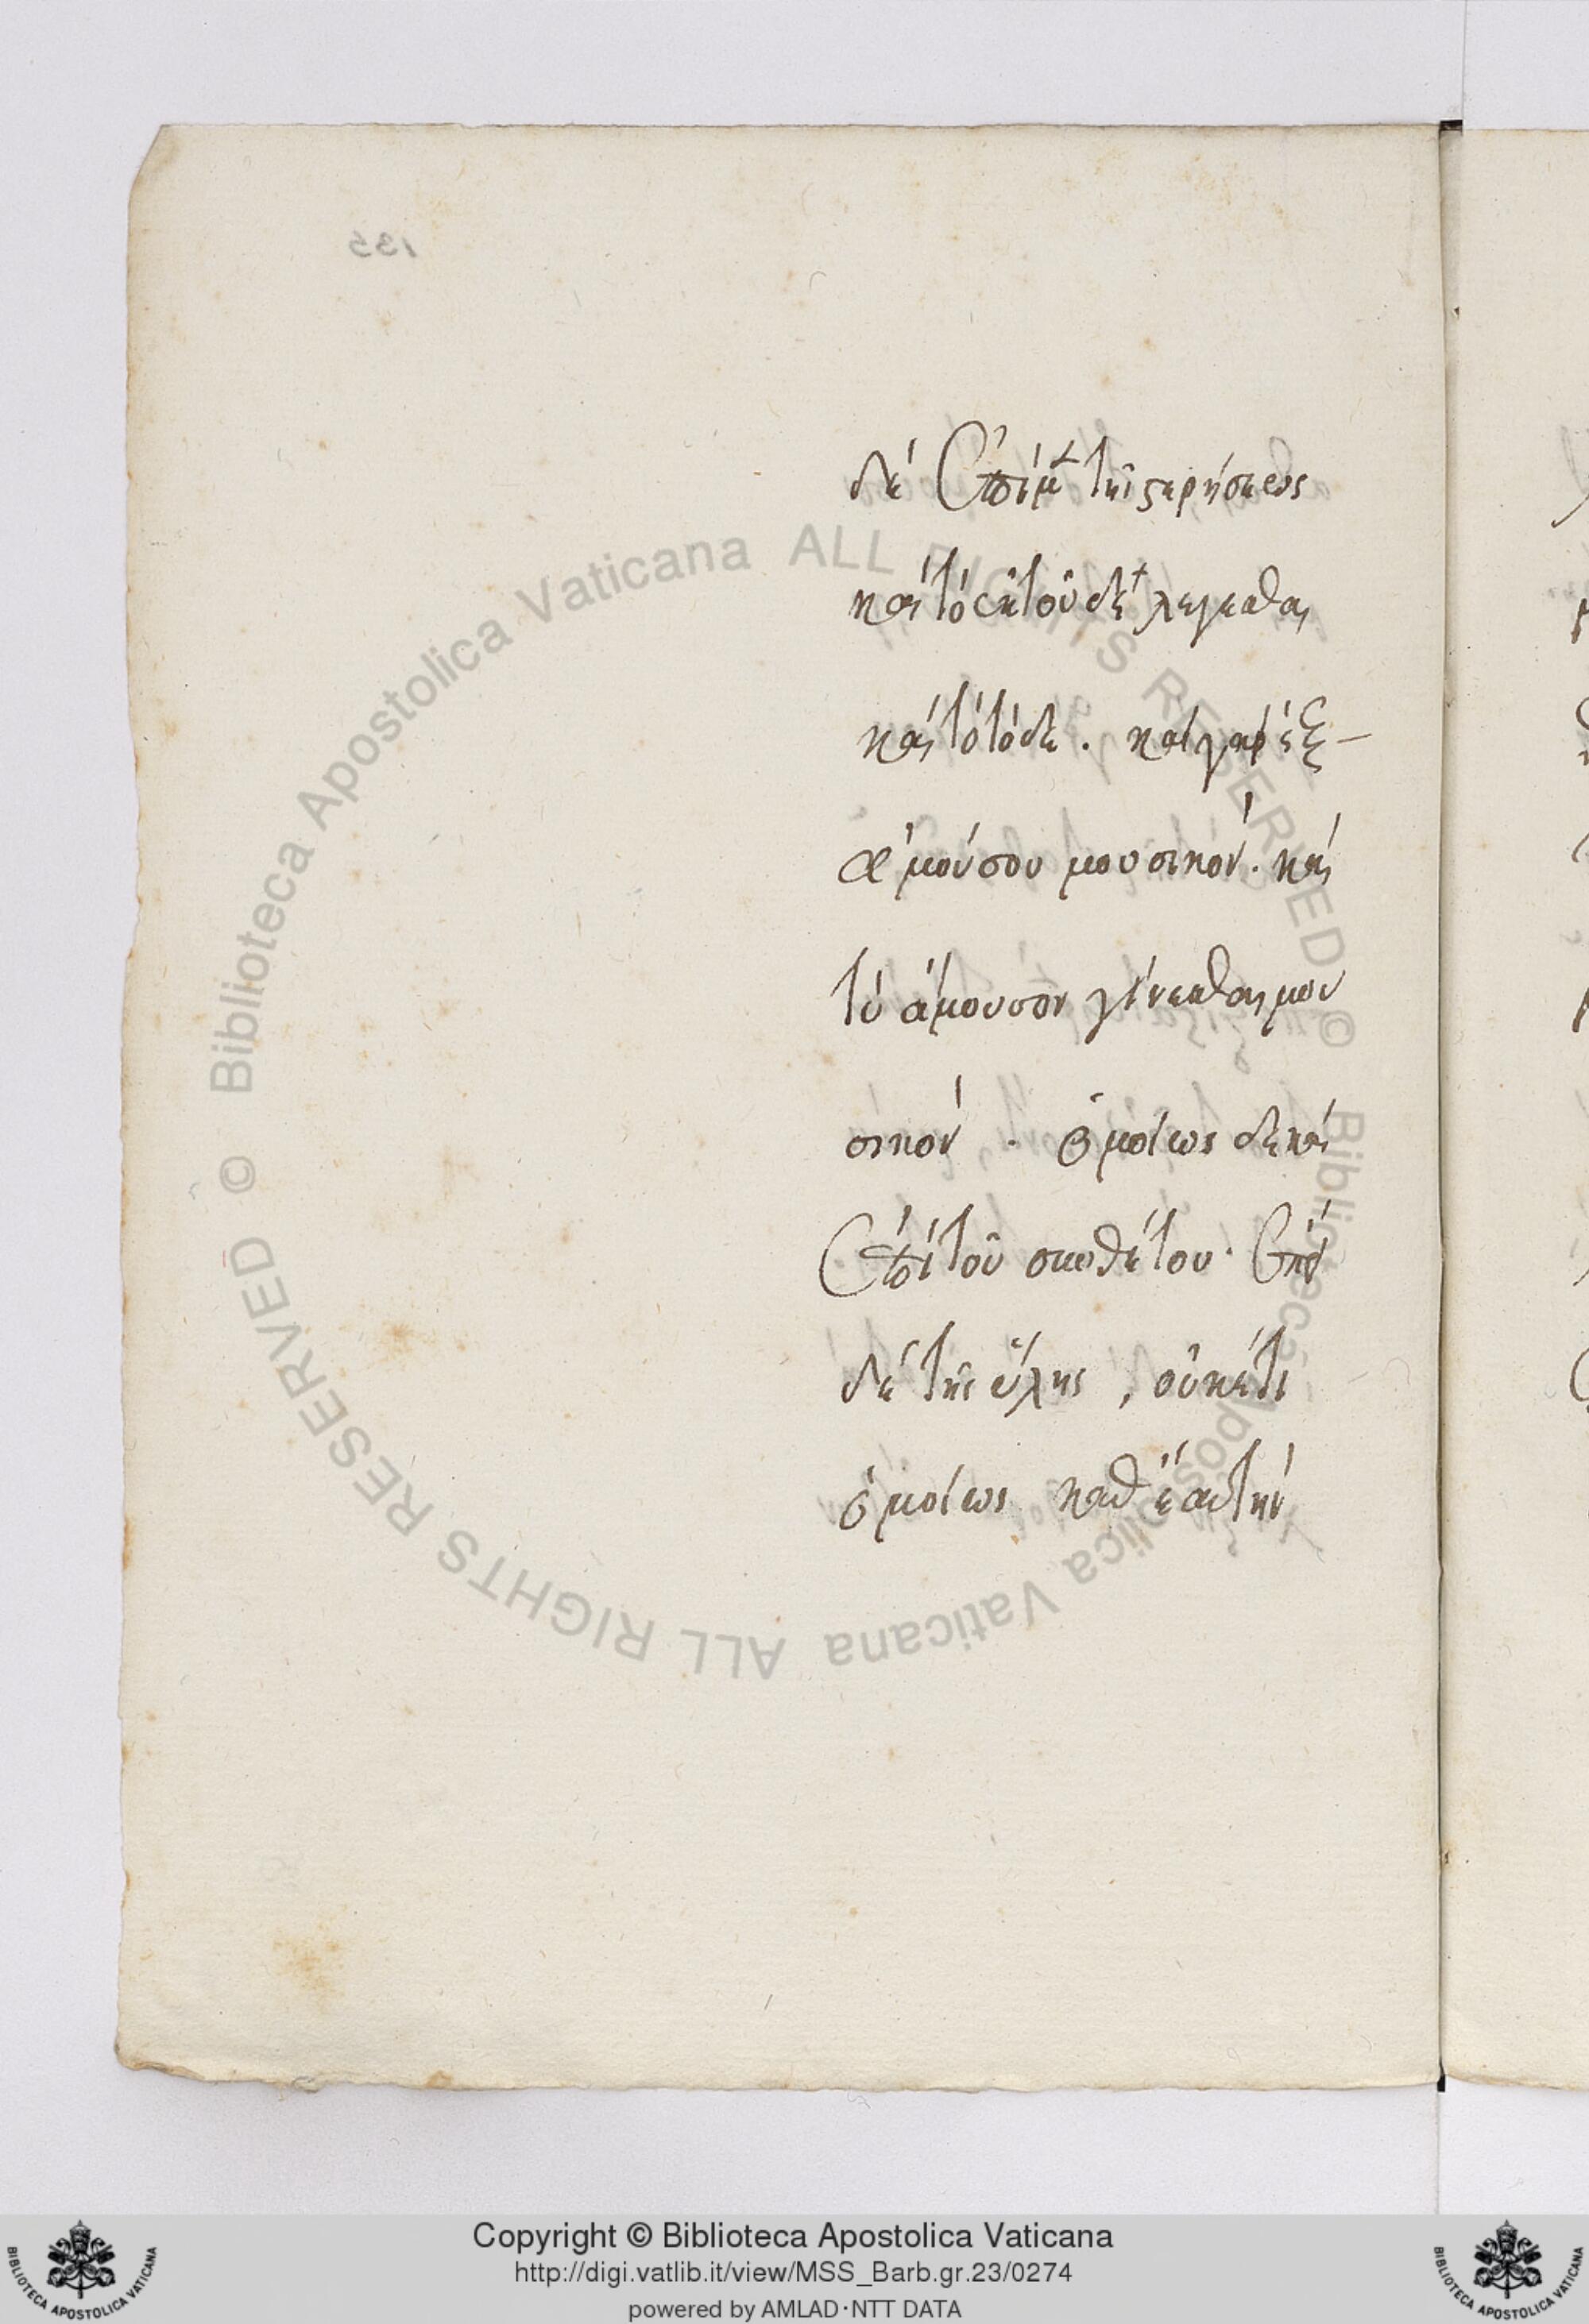 δὲ ἐπὶ μ τῆς ερήσεως
καὶ τὸ ἐκ τοῦδε λέγεσθαι
καὶ τὸ τόδε. καὶ γὰρ ἐξ
ἀμούσου μουσικόν. καὶ
τὸ ἄμουσον γίνεσθαι μου
σικόν. ὁμοίως δὲ καὶ
ἐπὶ τοῦ συνθέτου. ἐπὶ
δὲ τῆς ὕλης, οὐκέτι
ὁμοίως καθ' ἑαυτὴν
Biblioteca Apostolica Vaticana ALL RIGHTS RESERVED ©
Biblioteca Apostolica Vaticana ALL RIGHTS RESERVED ©
135
Copyright © Biblioteca Apostolica Vaticana
http://digi.vatlib.it/view/MSS_Barb.gr.23/0274
powered by AMLAD·NTT DATA
BIBLIOTECA APOSTOLICA VATICANA
BIBLIOTECA APOSTOLICA VATICANA